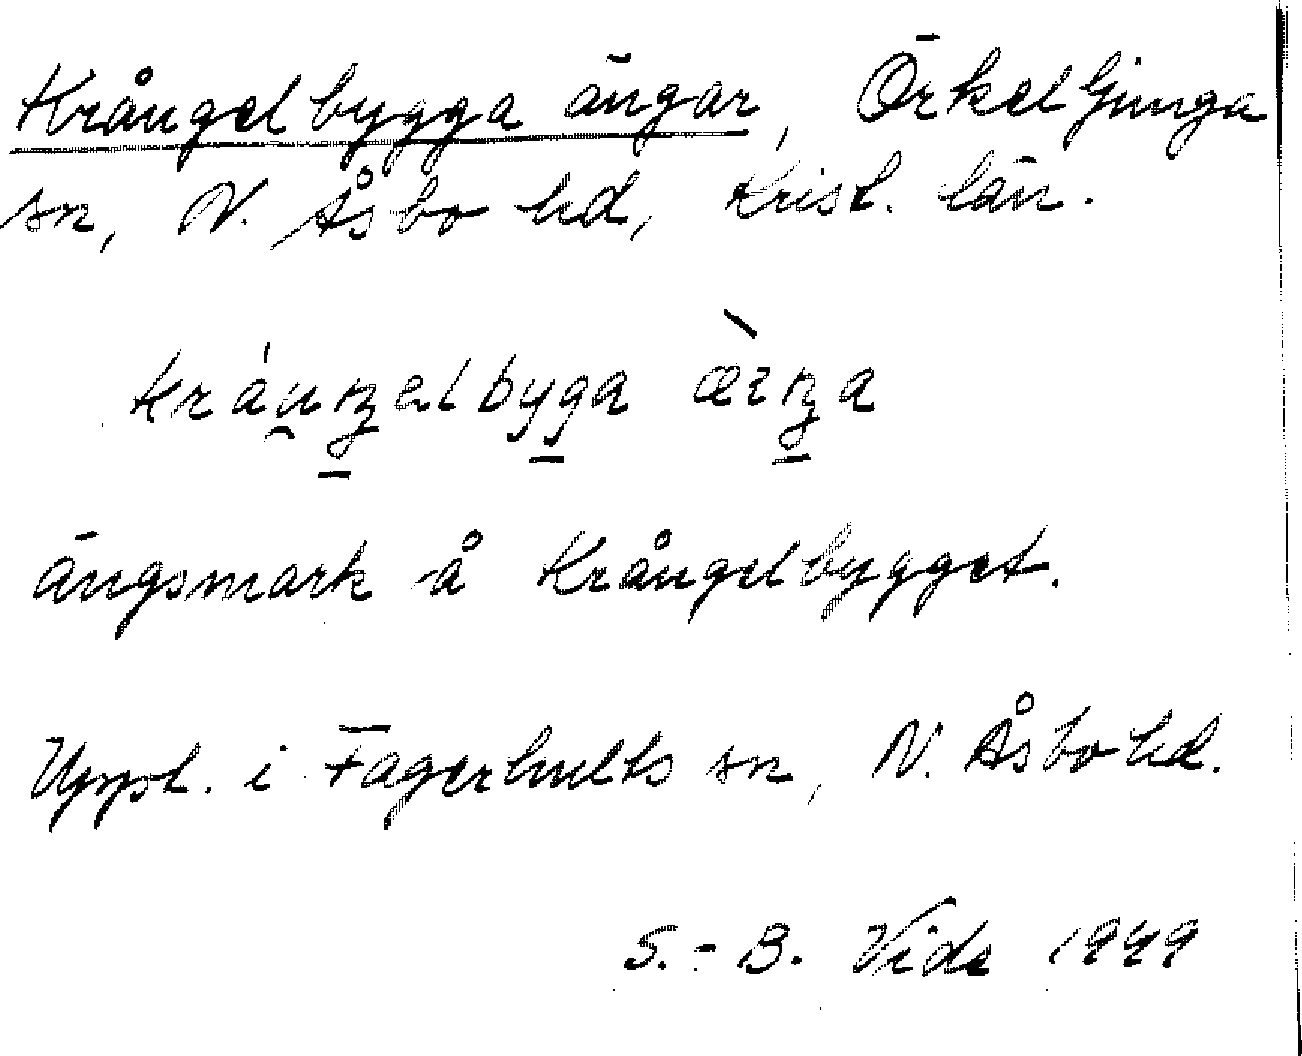 Krångelbygga ängar, Örkelljunga
sn, N. Åsbo hd, Krist. län.
ängsmark å Krångelbygget.
Uppt. i Fagerhults sn, N. Åsbo hd.
S.-B. Vide 1949